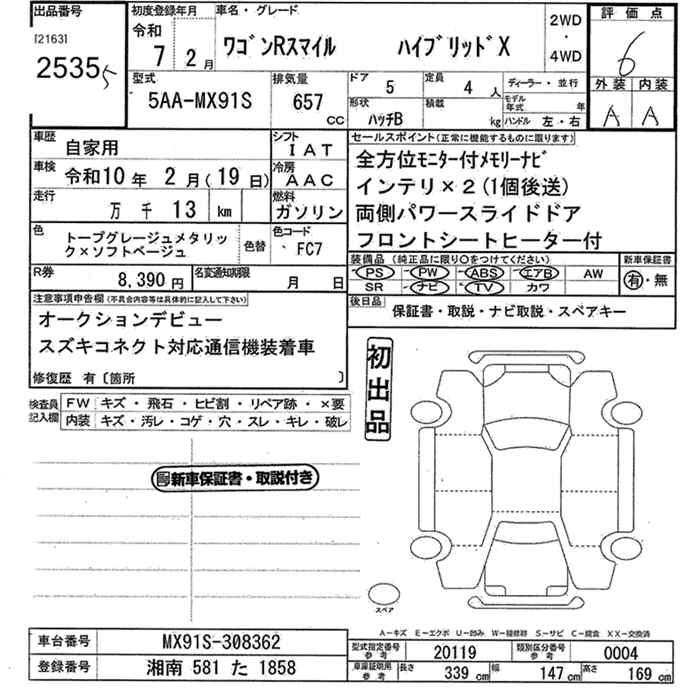 出品番号 初度登録年月 車名・グレード 2WD ・ 4WD 評価点
[2163] 令和 7年 2月 ワゴンRスマイル ハイブリッドX 6
25355 外装 内装
型式 排気量 ドア 定員 ディーラー・並行 A A
5AA-MX91S 657 CC 5 4 人 モデル年式 年
形状 ハッチB 積載 kg ハンドル 左・右
車歴 自家用 シフト IAT セールスポイント(正常に機能するものに限ります)
車検 令和10年 2月(19日) 冷房 AAC 全方位モニター付メモリーナビ
走行 万 千 13 km 燃料 ガソリン インテリ×2(1個後送)
両側パワースライドドア
色 トープグレージュメタリック×ソフトベージュ 色替 色コード FC7 フロントシートヒーター付
装備品 (純正品に限り○をつけてください) 新車保証書
R券 8,390円 名変通知期限 月 日 PS PW ABS エアB AW 有・無
SR ナビ TV カワ
注意事項申告欄(不具合内容等は具体的に記入して下さい) 後日品 保証書・取説・ナビ取説・スペアキー
オークションデビュー
スズキコネクト対応通信機装着車
修復歴 有〔箇所 〕
初出品
検査員記入欄 FW キズ・飛石・ヒビ割・リペア跡・×要
内装 キズ・汚レ・コゲ・穴・スレ・キレ・破レ
新車保証書・取説付き
スペア
A−キズ E−エクボ U−凹み W−補修跡 S−サビ C−腐食 XX−交換済
車台番号 MX91S-308362 型式指定番号 参考 20119 類別区分番号 参考 0004
登録番号 湘南 581 た 1858 車庫証明用 参考 長さ 339 cm 幅 147 cm 高さ 169 cm